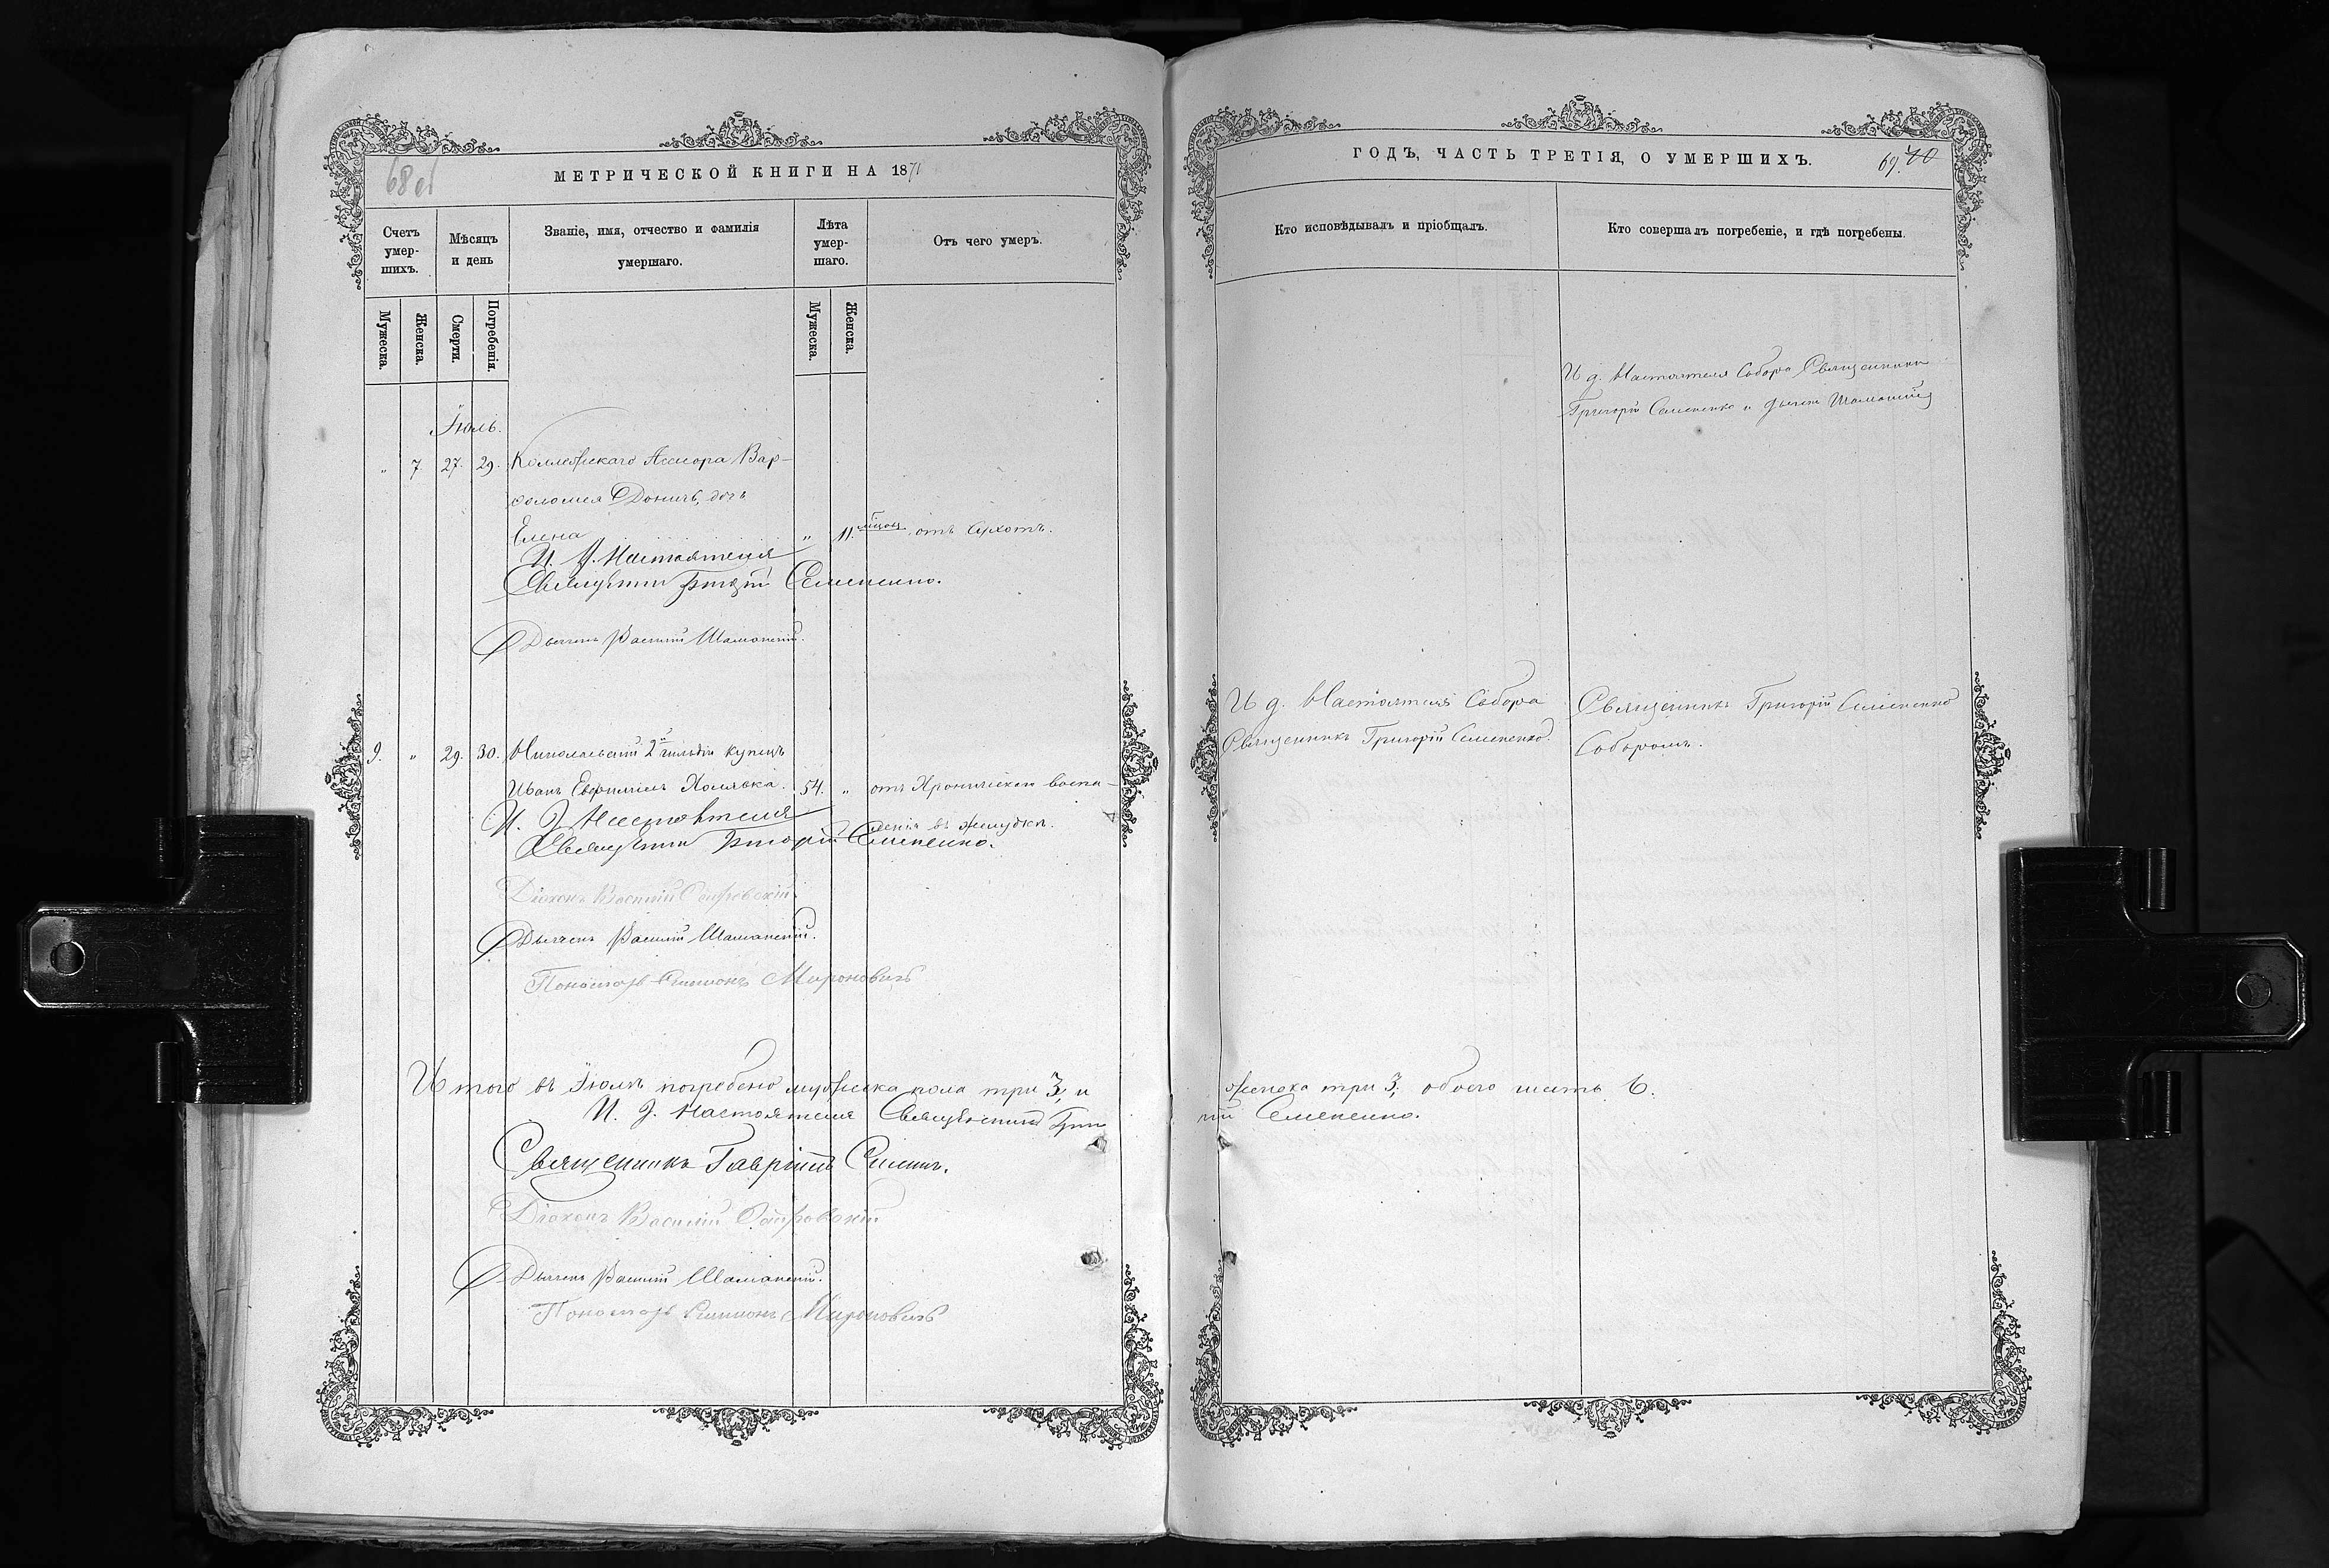 68 об
МЕТРИЧЕСКОЙ КНИГИ НА 1871
Счетъ умер-шихъ.
Мѣсяцъ и день
Званіе, имя, отчество и фамилія умершаго.
Лѣта умер-шаго.
Отъ чего умеръ.
Мужеска.
Женска.
Смерти.
Погребенія.
Мужеска.
Женска.
Іюль.
" 7 27. 29. Коллежскаго Ассесора Вар-
фоломея Доничъ, дочь
Елена " 11. мѣсяц. отъ сухотъ.
И. д. Настоятеля
Священникъ Григорій Семененко.
Дьячекъ Василій Шаманскій.
9. " 29. 30. Николаевскій 2й гильдіи купецъ
Иванъ Евфиміевъ Холявка. 54. " отъ Хроническаго воспа-
ленія въ желудкѣ.
И. д. Настоятеля
Священникъ Григорій Семененко.
Діаконъ Василій
Дьячекъ Василій Шаманскій.
Пономарь Симеонъ Мироновичъ
Итого въ Іюлѣ погребено мужеска пола три 3, и
И. д. Настоятеля Священникъ Григо
Священникъ Гавріилъ
Діаконъ Василій
Дьячекъ Василій Шаманскій.
Пономарь Симеонъ Мироновичъ
ГОДЪ, ЧАСТЬ ТРЕТІЯ, О УМЕРШИХЪ.
69. 70
Кто исповѣдывалъ и пріобщалъ.
Кто совершалъ погребеніе, и гдѣ погребены.
И д. Настоятеля Собора Священникъ
Григорій Семененко и дьячекъ Шаманскій
И д. Настоятеля Собора
Священникъ Григорій Семененко.
Священникъ Григорій Семененко
Соборомъ.
женска три 3, обоего шесть 6.
рій Семененко.